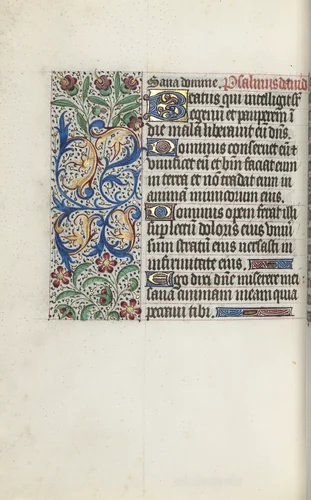 Sana domine. Psalmus david
Beatus qui intelligit sr
egenu et pauperem i
die mala liberavit eu dns.
Dominus conservet eu et
vivificet eu et btm faciat eum
in terra et no tradat eum in
animam inimicorum eius.
Dominus opem ferat illi
sup lectu doloris eius univsu
sum stratum eius versasti in
infirmitate eius.
Ego dixi dne miserere mei
sana animam meam quia
peccavi tibi.